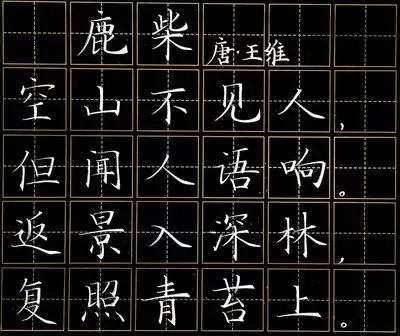 鹿柴 唐·王维
空山不见人，
但闻人语响。
返景入深林，
复照青苔上。